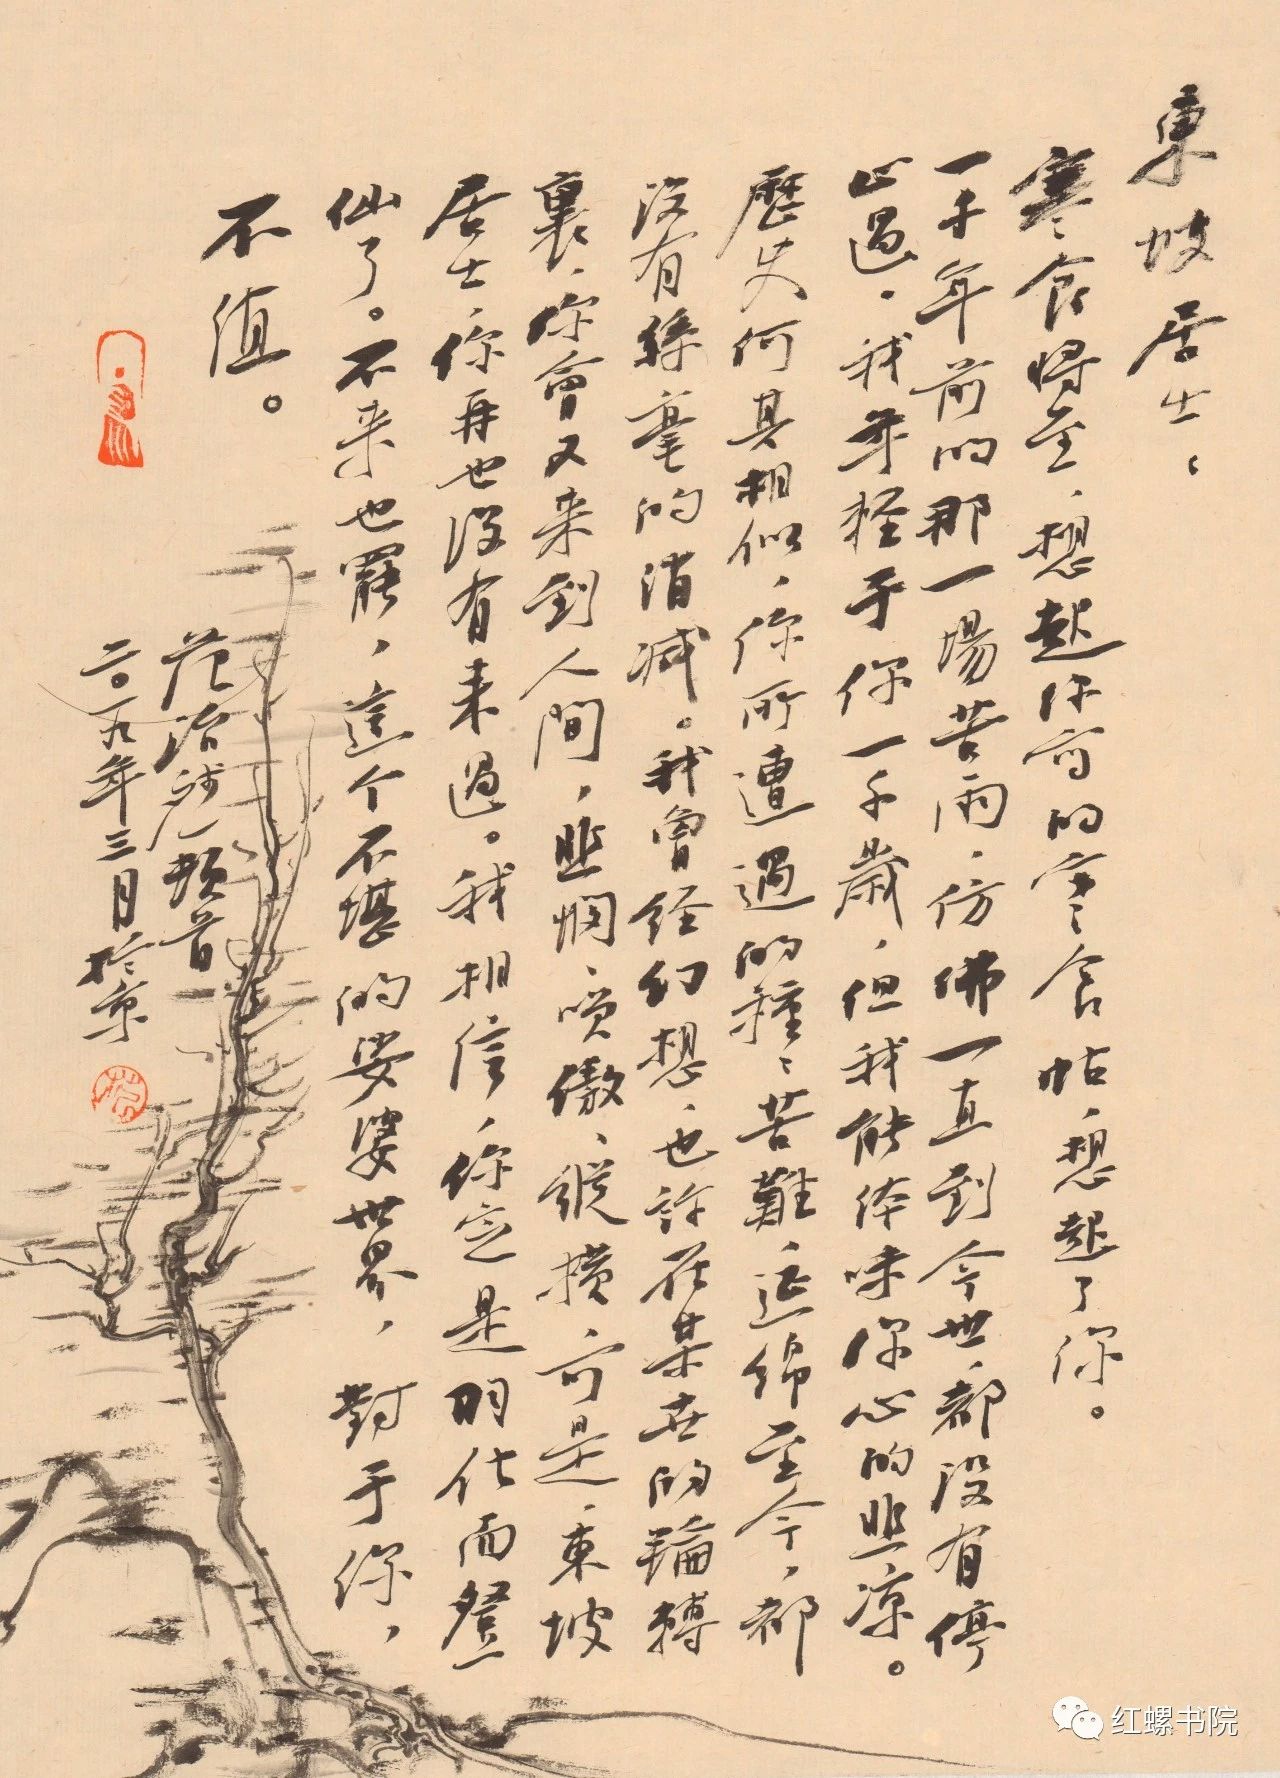 東坡居士：
寒食將至，想起你寫的寒食帖，想起了你。
一千年前的那一場苦雨，仿佛一直到今世，都没有停
止過。我年輕于你一千歲，但我能体味你心的悲凉。
歷史何其相似，你所遭遇的種〻苦難，延綿至今，都
没有絲毫的消减。我曾經幻想，也許在某世的輪轉
裏，你會又来到人間，悲憫、啸傲、縱横，可是，東坡
居士，你再也没有来過。我相信，你定是羽化而登
仙了。不来也罷，這个不堪的娑婆世界，對于你，
不值。
范治斌頓首
二〇一九年三月於京
红螺书院